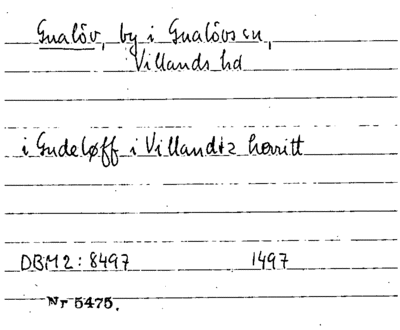 Gualöv, by i Gualövs sn,
Villands hd
i Gudeløff i Villandtz herritt
DBM 2: 8497 1497
Nr 5475.